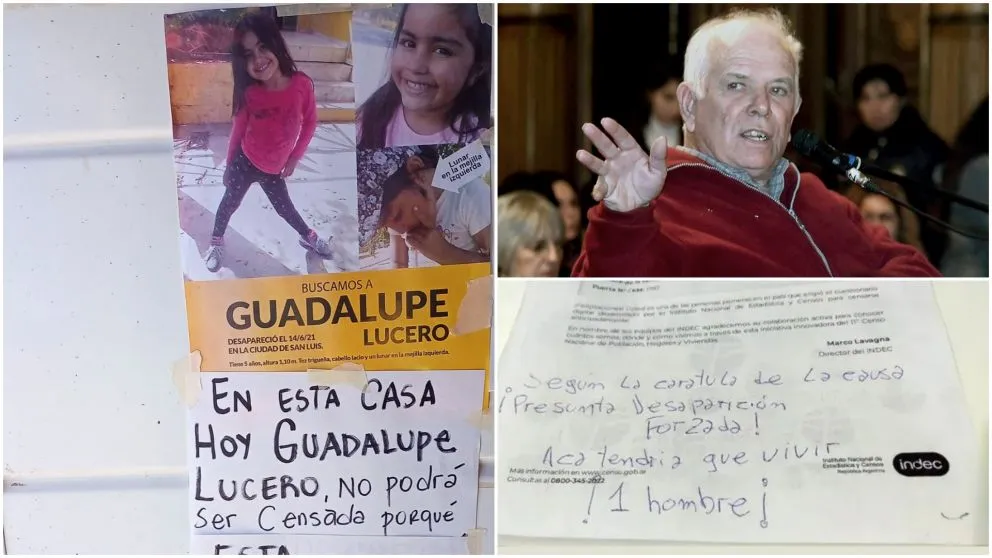 Lunar
en la mejilla
izquierda
BUSCAMOS A
GUADALUPE
LUCERO
DESAPARECIÓ EL 14/6/21
EN LA CIUDAD DE SAN LUIS.
Tiene 5 años, altura 1,10 m. Tez trigueña, cabello lacio y un lunar en la mejilla izquierda.
EN ESTA CASA
HOY GUADALUPE
LUCERO, NO PODRÁ
SER CENSADA PORQUÉ
ESTA
digital desarrollado por el Instituto Nacional de Estadística y Censos para censarse
En nombre de los equipos del INDEC agradecemos su colaboración activa para conocer
cuántos somos, dónde y cómo vivimos a través de esta iniciativa innovadora del 11° Censo
Nacional de Población, Hogares y Viviendas.
Marco Lavagna
Director del INDEC
¡Segun La caratula de La causa
¡Presunta Desaparición
Forzada!
Aca tendria que vivir
Instituto Nacional de
Estadística y Censos
República Argentina
indec
Más información en www.censo.gob.ar
Consultas al 0800-345-2022
¡1 hombre!